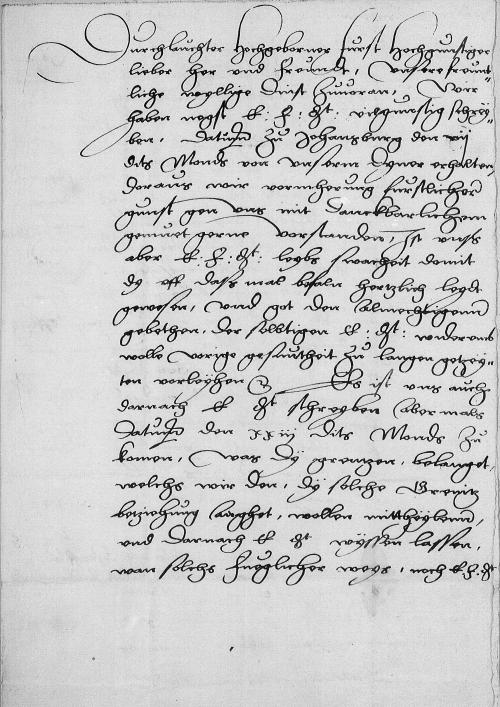 Durchlauchter Hochgeborner Furst Hochgunstiger
lieber her und freundt, Unsere freunt-
liche wyllige dinst zuuoran, Wir
haben negst E: F: Dt: vilgunstig schrey-
ben, Datum zu Johansburg den vij
dits Monds von unserm dyner erhalten
doraus wir vormherung furstlicher
gunst gen uns mit danckbarlichem
gemuet gerne vorstanden, Ist uns
aber E: F: Dt: leybs swacheit domit
dy uff dass mal befaln hertzlich leydt
gewesen, Und got den Almechtigenn
gebethen, der selbtigen E: Dt: widerumb
wolle vorige gesuntheit zu langen getzey-
ten vorleyhen Es ist uns auch
darnach E Dt schreyben abermals
Datum den xxiij dits Monds zu
komen, Was dy grentzen, belanget,
welchs wir den, dy solche Grenitz
betziehung anghet, wollen mittheylenn,
und darnach E Dt wyssen lassen,
wan solchs fuglicher weys, noch E. F. Dt